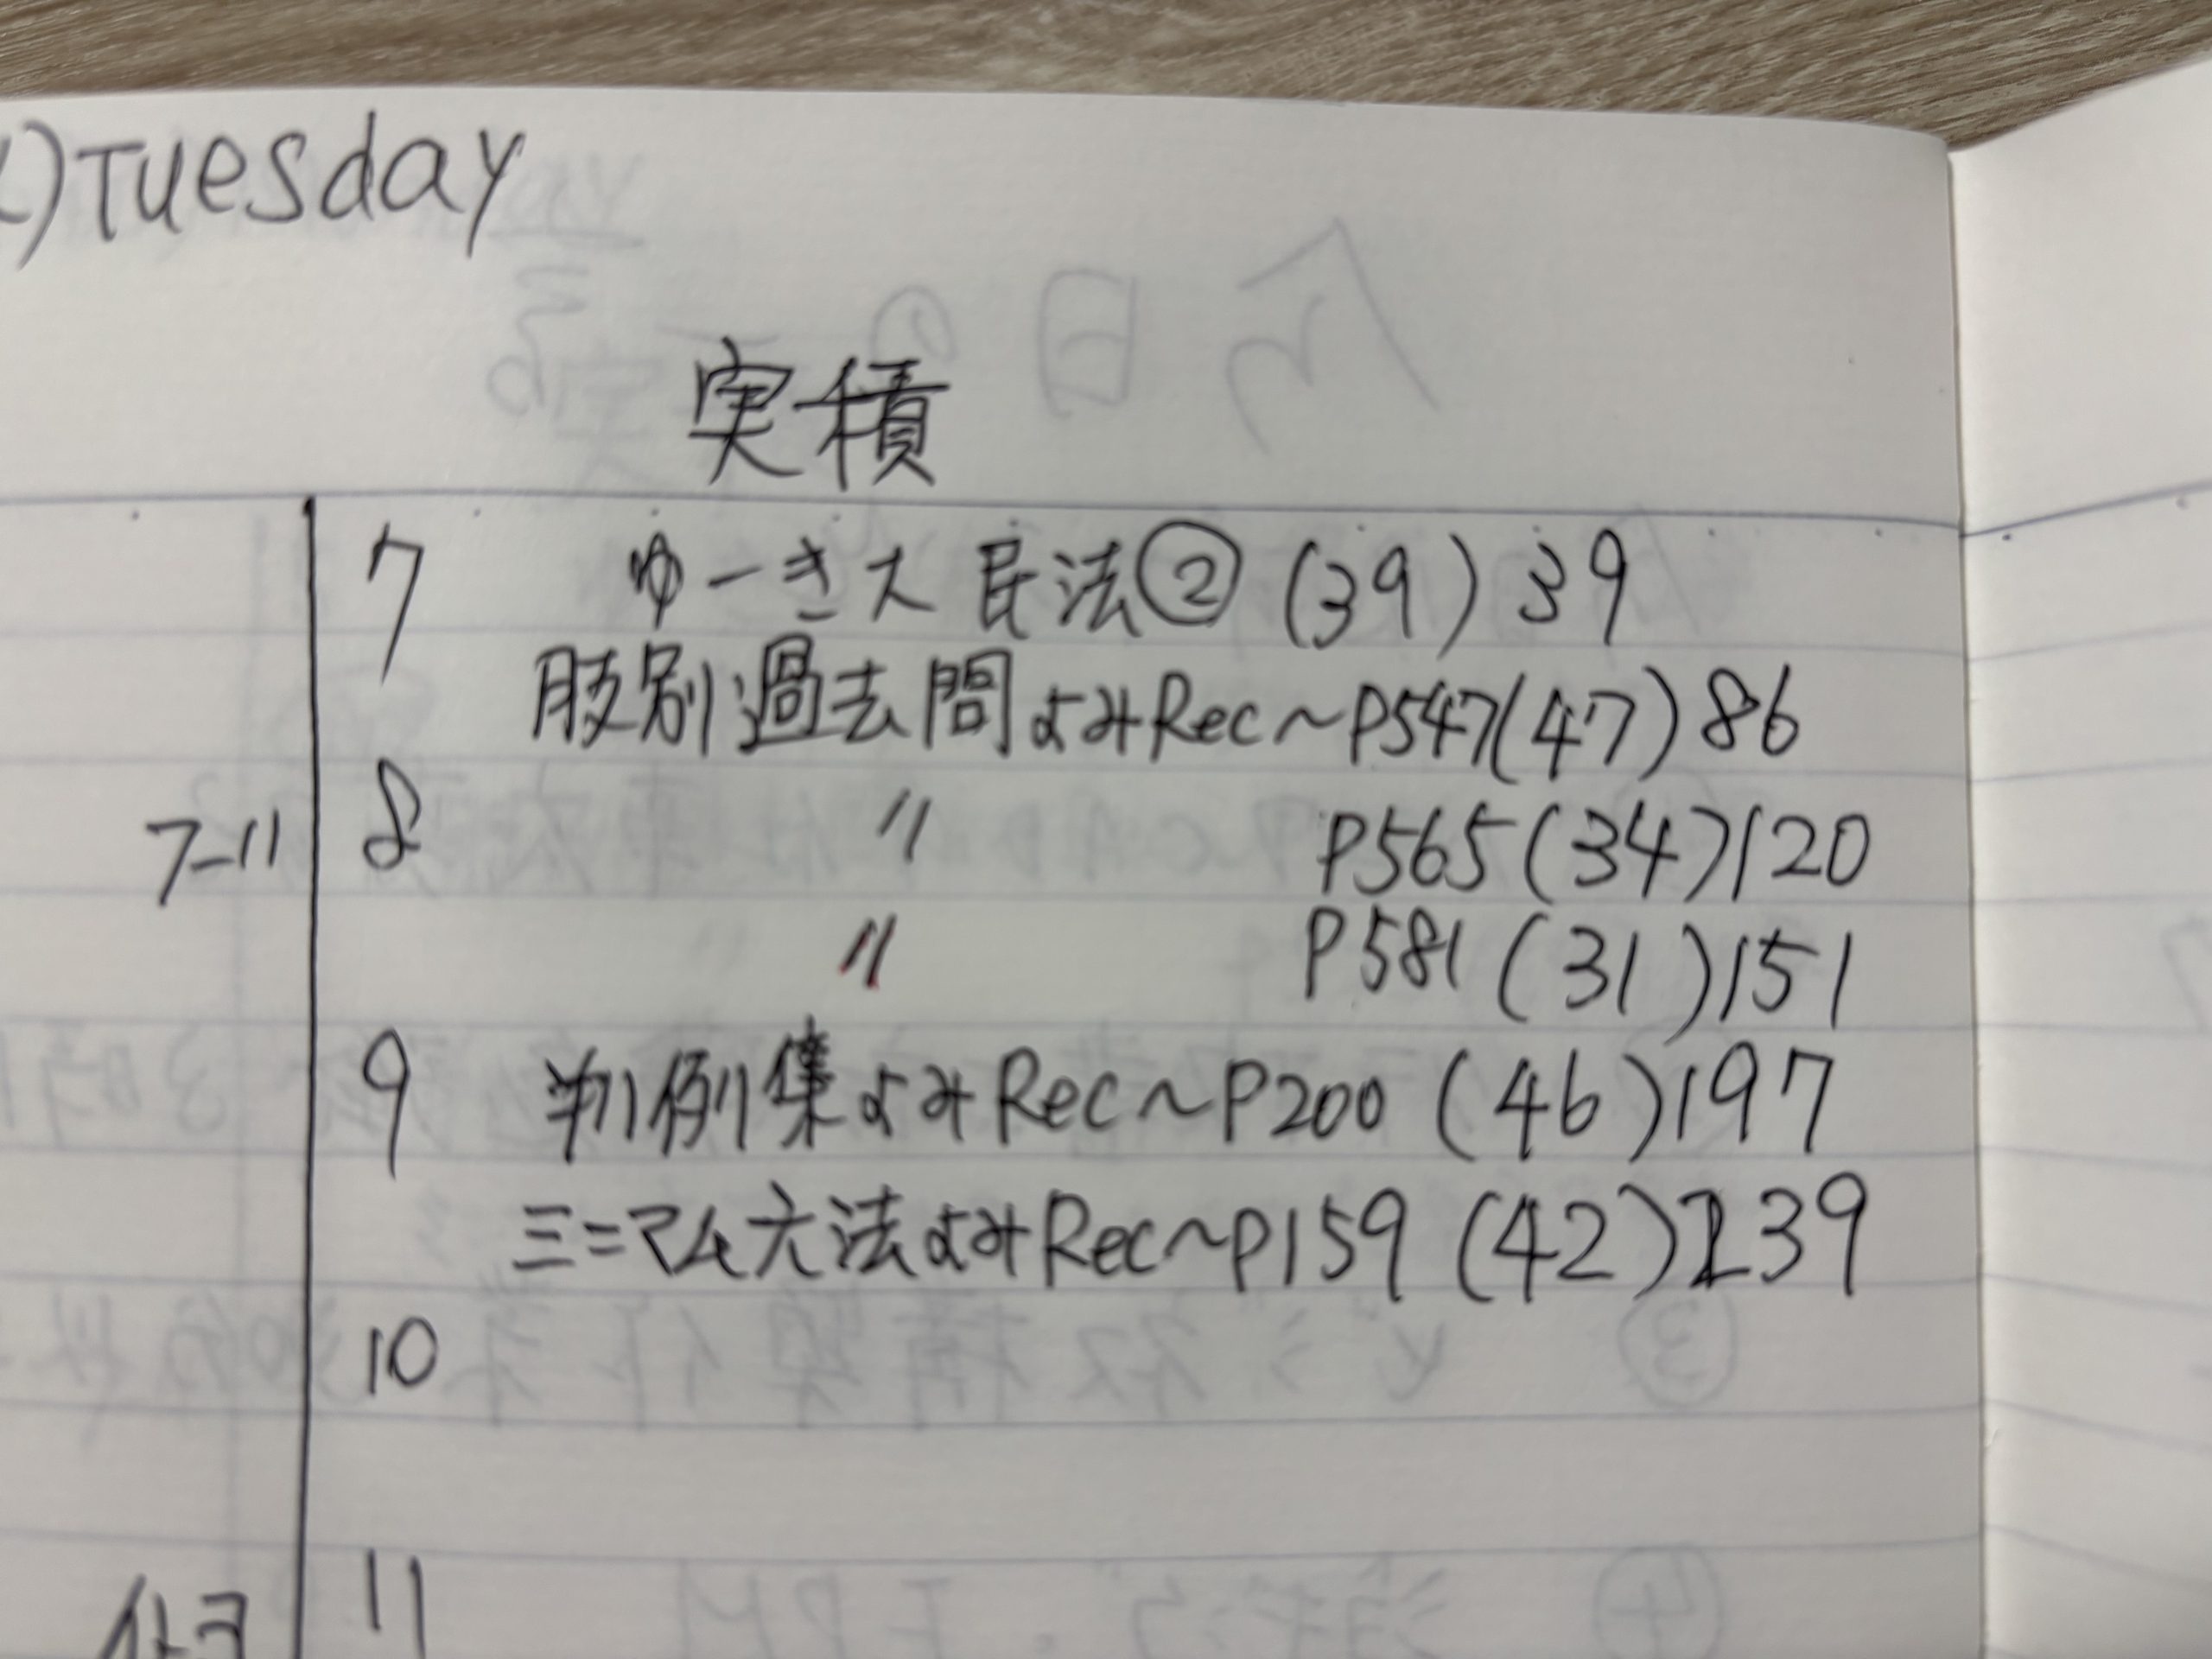 )Tuesday
実積
7 ゆーき大 民法② (39) 39
肢別過去問よみRec~P547(47) 86
7-11 8 〃 P565(34) 120
〃 P581 (31) 151
9 判例集よみRec~P200 (46) 197
ミニマム六法よみRec~P159 (42) 239
10
11